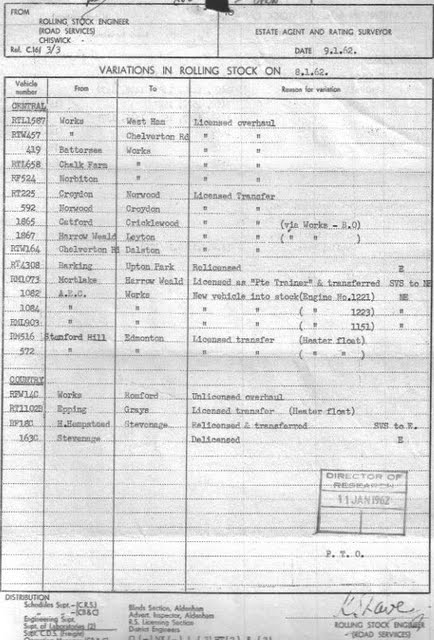 FROM
ROLLING STOCK ENGINEER
(ROAD SERVICES)
CHISWICK
Ref. C.16/ 3/3
TO
ESTATE AGENT AND RATING SURVEYOR
DATE 9.1.62.
VARIATIONS IN ROLLING STOCK ON 8.1.62.
Vehicle number From To Reason for variation
CENTRAL
RTL1587 Works West Ham Licensed overhaul
RTW457 " Chelverton Rd " "
419 Battersea Works " "
RTL658 Chalk Farm " " "
RF524 Norbiton " " "
RT225 Croydon Norwood Licensed Transfer
592 Norwood Croydon " "
1865 Catford Cricklewood " " (via Works - R.O)
1867 Harrow Weald Leyton " " ( " " )
RTW164 Chelverton Rd Dalston " "
RT4308 Barking Upton Park Relicensed E
RML073 Mortlake Harrow Weald Licensed as "Pte Trainer" & transferred SVS to NE
1082 A.E.C. Works New vehicle into stock(Engine No.1221) NE
1084 " " " " ( " 1223) "
RML903 " " " " ( " 1151) "
RM516 Stamford Hill Edmonton Licensed transfer (Heater float)
572 " " " " ( " " )
COUNTRY
RFW14C Works Romford Unlicensed overhaul
RT1102B Epping Grays Licensed transfer (Heater float)
RF18C H.Hempstead Stevenage Relicensed & transferred SVS to E.
163C Stevenage Delicensed E
DIRECTOR OF
RESEARCH
11 JAN 1962
P. T. O.
DISTRIBUTION
Schedules Supt.-(C.R.S.)
" -(CB&C)
Engineering Supt.
Supt. of Laboratories (2)
Supt. C.D.S. (Freight)
Blinds Section, Aldenham
Advert. Inspector, Aldenham
R.S. Licensing Section
District Engineers
ROLLING STOCK ENGINEER
(ROAD SERVICES)